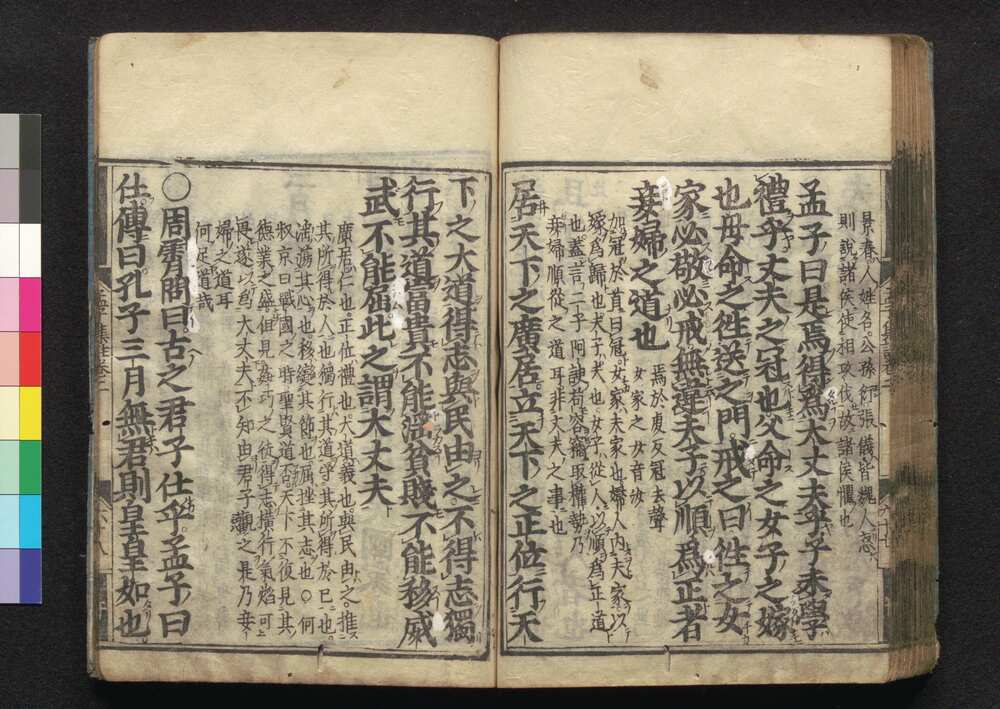 景春人姓名公孫衍張儀皆魏人怒
則說諸侯使相攻伐故諸侯懼也
孟子曰是焉得爲大丈夫乎子未學
禮乎丈夫之冠也父命之女子之嫁
也母命之徃送之門戒之曰徃之女
家必敬必戒無違夫子以順爲正者
妾婦之道也
焉於虔反冠去聲
女家之女音汝
加冠於首曰冠女家夫家也婦人内夫家以
嫁爲歸也夫子夫也女子從人以順爲正道
也蓋言二子阿諛苟容竊取權勢乃
妾婦順從之道耳非丈夫之事也
居天下之廣居立天下之正位行天
下之大道得志與民由之不得志獨
行其道富貴不能淫貧賤不能移威
武不能屈此之謂大丈夫
廣居仁也正位禮也大道義也與民由之推
其所得於人也獨行其道守其所得於已也
淫蕩其心也移變其節也屈挫其志也○何
叔京曰戰國之時聖賢道否天下不復見其
德業之盛但見姦巧之徒得志横行氣焰可
畏遂以爲大丈夫不知由君子觀之是乃妾
婦之道耳
何足道哉
○周霄問曰古之君子仕乎孟子曰
仕傳曰孔子三月無君則皇皇如也